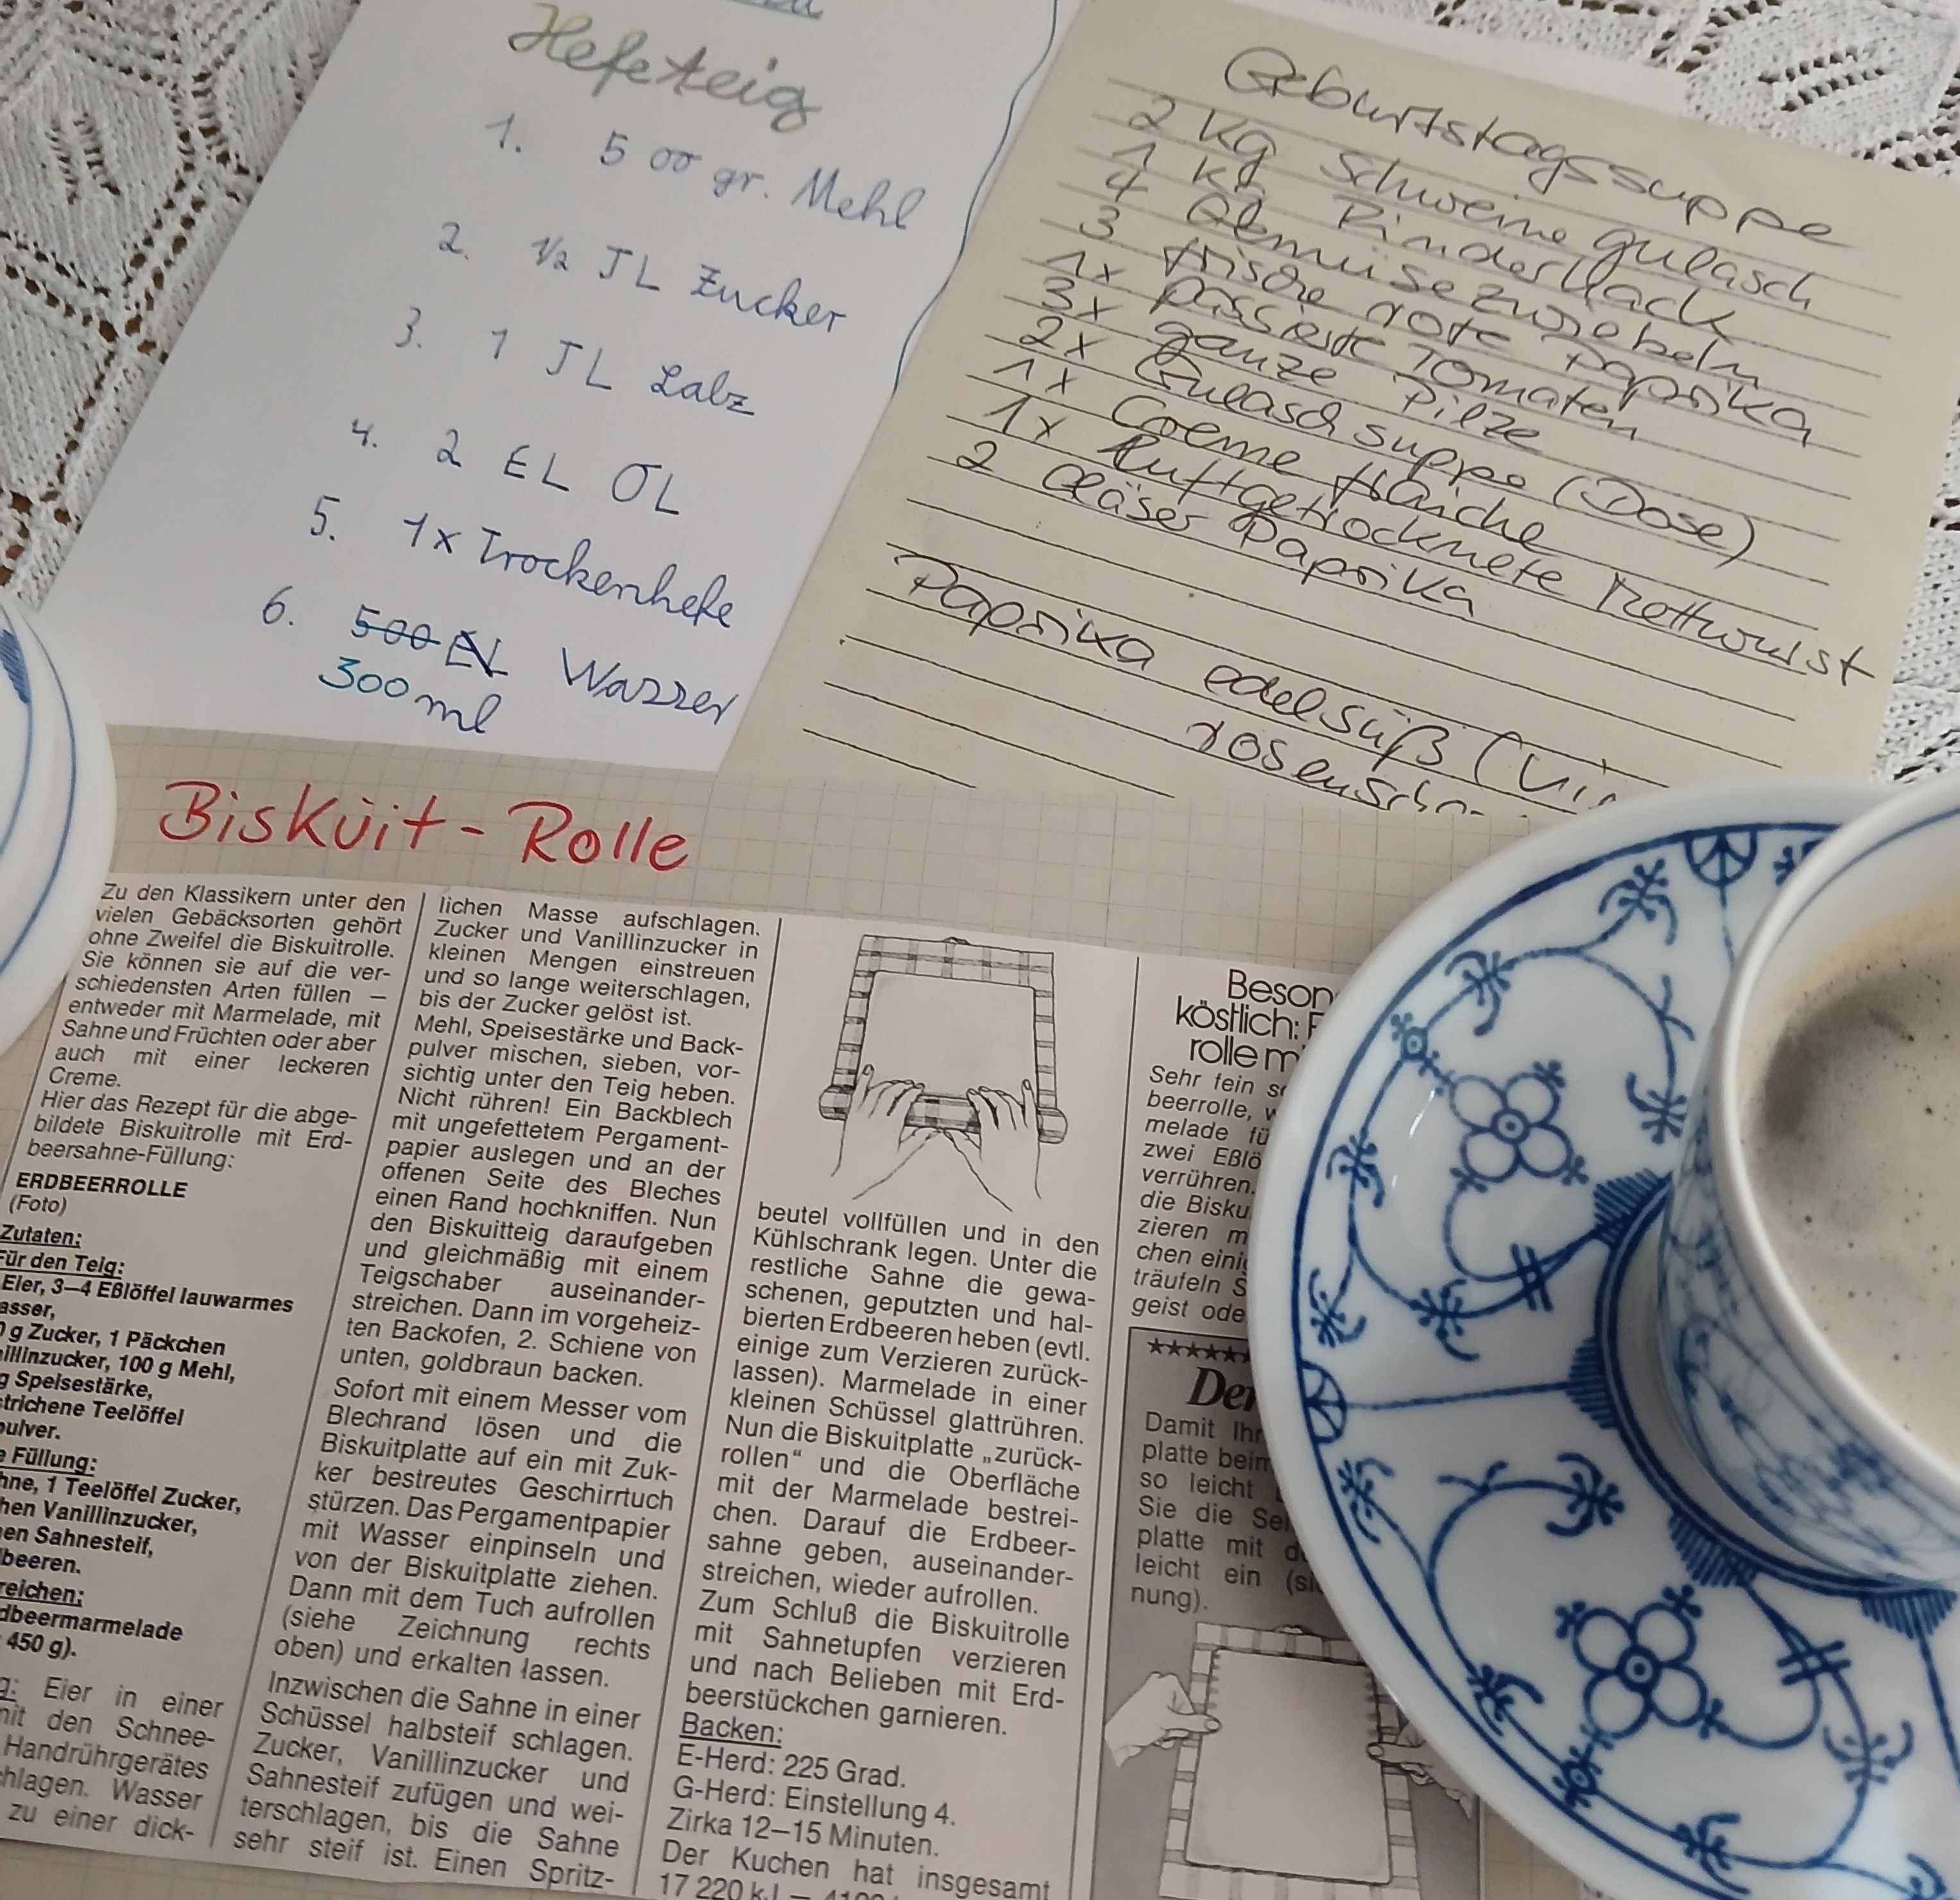 Hefeteig
1. 500 gr. Mehl
2. 1/2 TL Zucker
3. 1 TL Salz
4. 2 EL ÖL
5. 1x Trockenhefe
6. 500 EL Wasser
300 ml
Geburtstagssuppe
2 Kg Schweinegulasch
1 Kg Rinderhack
4 Gemüsezwiebeln
3 frische rote Paprika
1x passierte Tomaten
3x ganze Pilze
2x Gulaschsuppe (Dose)
1x Creme fraiche
1x Luftgetrocknete Mettwurst
2 Gläser Paprika
Paprika edelsüß (
Biskuit-Rolle
Zu den Klassikern unter den
vielen Gebäcksorten gehört
ohne Zweifel die Biskuitrolle.
Sie können sie auf die ver-
schiedensten Arten füllen —
entweder mit Marmelade, mit
Sahne und Früchten oder aber
auch mit einer leckeren
Creme.
Hier das Rezept für die abge-
bildete Biskuitrolle mit Erd-
beersahne-Füllung:
ERDBEERROLLE
(Foto)
Zutaten:
Für den Teig:
Eier, 3–4 Eßlöffel lauwarmes
asser,
0 g Zucker, 1 Päckchen
nillinzucker, 100 g Mehl,
g Speisestärke,
strichene Teelöffel
pulver.
e Füllung:
hne, 1 Teelöffel Zucker,
hen Vanillinzucker,
en Sahnesteif,
beeren.
reichen:
dbeermarmelade
450 g).
g: Eier in einer
mit den Schnee-
Handrührgerätes
hlagen. Wasser
zu einer dick-
lichen Masse aufschlagen.
Zucker und Vanillinzucker in
kleinen Mengen einstreuen
und so lange weiterschlagen,
bis der Zucker gelöst ist.
Mehl, Speisestärke und Back-
pulver mischen, sieben, vor-
sichtig unter den Teig heben.
Nicht rühren! Ein Backblech
mit ungefettetem Pergament-
papier auslegen und an der
offenen Seite des Bleches
einen Rand hochkniffen. Nun
den Biskuitteig daraufgeben
und gleichmäßig mit einem
Teigschaber auseinander-
streichen. Dann im vorgeheiz-
ten Backofen, 2. Schiene von
unten, goldbraun backen.
Sofort mit einem Messer vom
Blechrand lösen und die
Biskuitplatte auf ein mit Zuk-
ker bestreutes Geschirrtuch
stürzen. Das Pergamentpapier
mit Wasser einpinseln und
von der Biskuitplatte ziehen.
Dann mit dem Tuch aufrollen
(siehe Zeichnung rechts
oben) und erkalten lassen.
Inzwischen die Sahne in einer
Schüssel halbsteif schlagen.
Zucker, Vanillinzucker und
Sahnesteif zufügen und wei-
terschlagen, bis die Sahne
sehr steif ist. Einen Spritz-
beutel vollfüllen und in den
Kühlschrank legen. Unter die
restliche Sahne die gewa-
schenen, geputzten und hal-
bierten Erdbeeren heben (evtl.
einige zum Verzieren zurück-
lassen). Marmelade in einer
kleinen Schüssel glattrühren.
Nun die Biskuitplatte „zurück-
rollen“ und die Oberfläche
mit der Marmelade bestrei-
chen. Darauf die Erdbeer-
sahne geben, auseinander-
streichen, wieder aufrollen.
Zum Schluß die Biskuitrolle
mit Sahnetupfen verzieren
und nach Belieben mit Erd-
beerstückchen garnieren.
Backen:
E-Herd: 225 Grad.
G-Herd: Einstellung 4.
Zirka 12–15 Minuten.
Der Kuchen hat insgesamt
17 220 kJ —
Beson
köstlich:
rolle m
Sehr fein s
beerrolle, w
melade fü
zwei Eßlö
verrühren.
die Bisku
zieren m
chen einig
träufeln S
geist ode
★★★★★★
Der
Damit Ihr
platte beim
so leicht
Sie die Sei
platte mit d
leicht ein (si
nung).